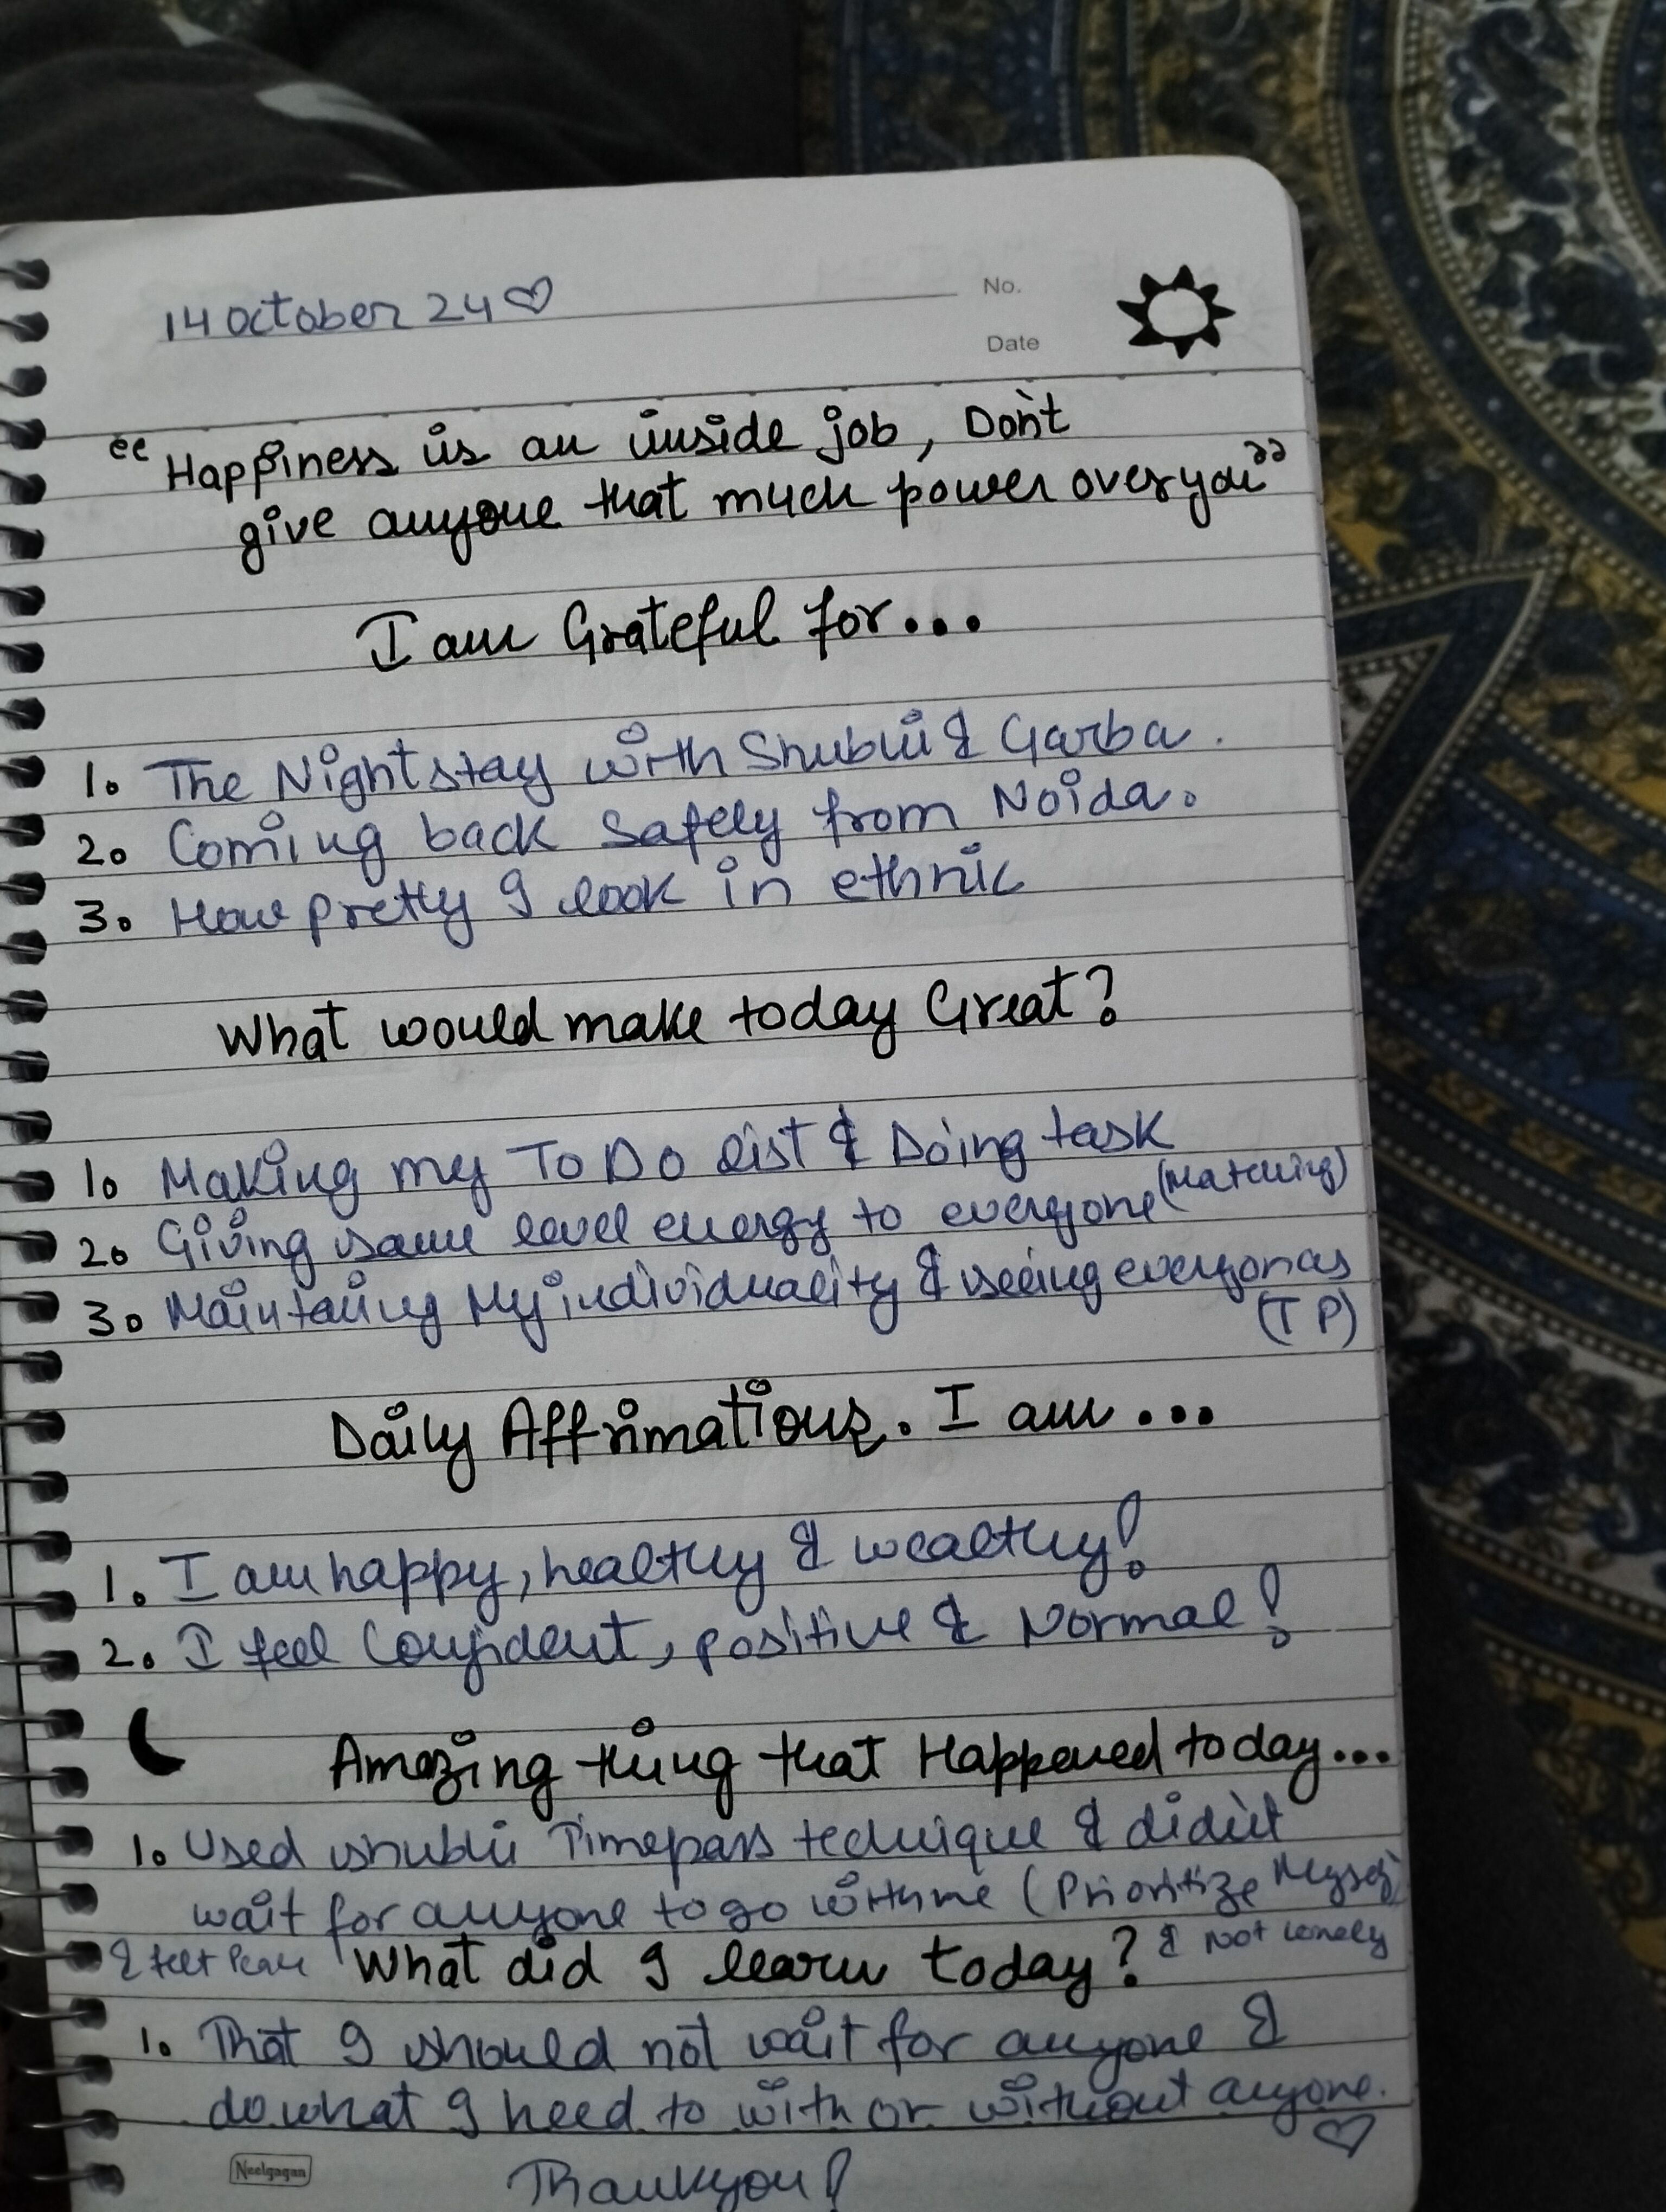 14 October 24 ♡
No.
Date
"Happiness is an inside job, Don't
give anyone that much power over you"
I am Grateful for...
1. The Night stay with Shubhi & Garba.
2. Coming back safely from Noida.
3. How pretty I look in ethnic
What would make today Great?
1. Making my To Do list & Doing task
2. Giving same level energy to everyone (Matching)
3. Maintaining My individuality & seeing everyonas
(TP)
Daily Affirmations. I am...
1. I am happy, healthy & wealthy!
2. I feel Confident, positive & Normal!
Amazing thing that Happened today...
1. Used shubhi Timepass technique & didn't
wait for anyone to go with me (Prioritize Myself
& felt & Not lonely
What did I learn today?
1. That I should not wait for anyone &
do what I need to with or without anyone.
♡
Neelgagan
Thankyou!